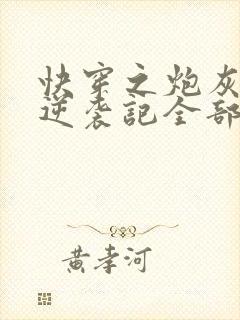 快穿之炮灰
逆袭記全部
黄孝河